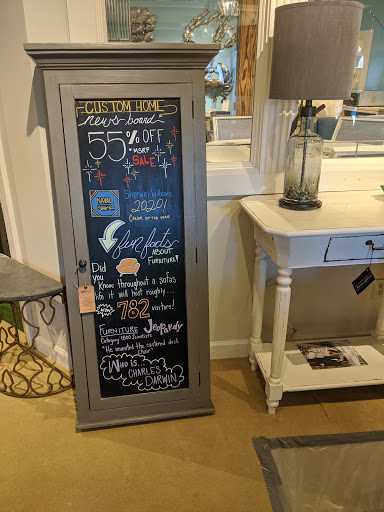 CUSTOM HOME
news-board
55% OFF
*MSRP
SALE
NAVAL
Sherwin-Williams
2020!
COLOR OF THE YEAR
fun facts
ABOUT
FURNITURE!
Did
you
Know throughout a sofas
life it will host roughly...
782 visitors!
FURNITURE JEOPARDY
Category: 1800 Scientists
"He invented the castered desk
Chair"
WHO IS...
CHARLES
DARWIN